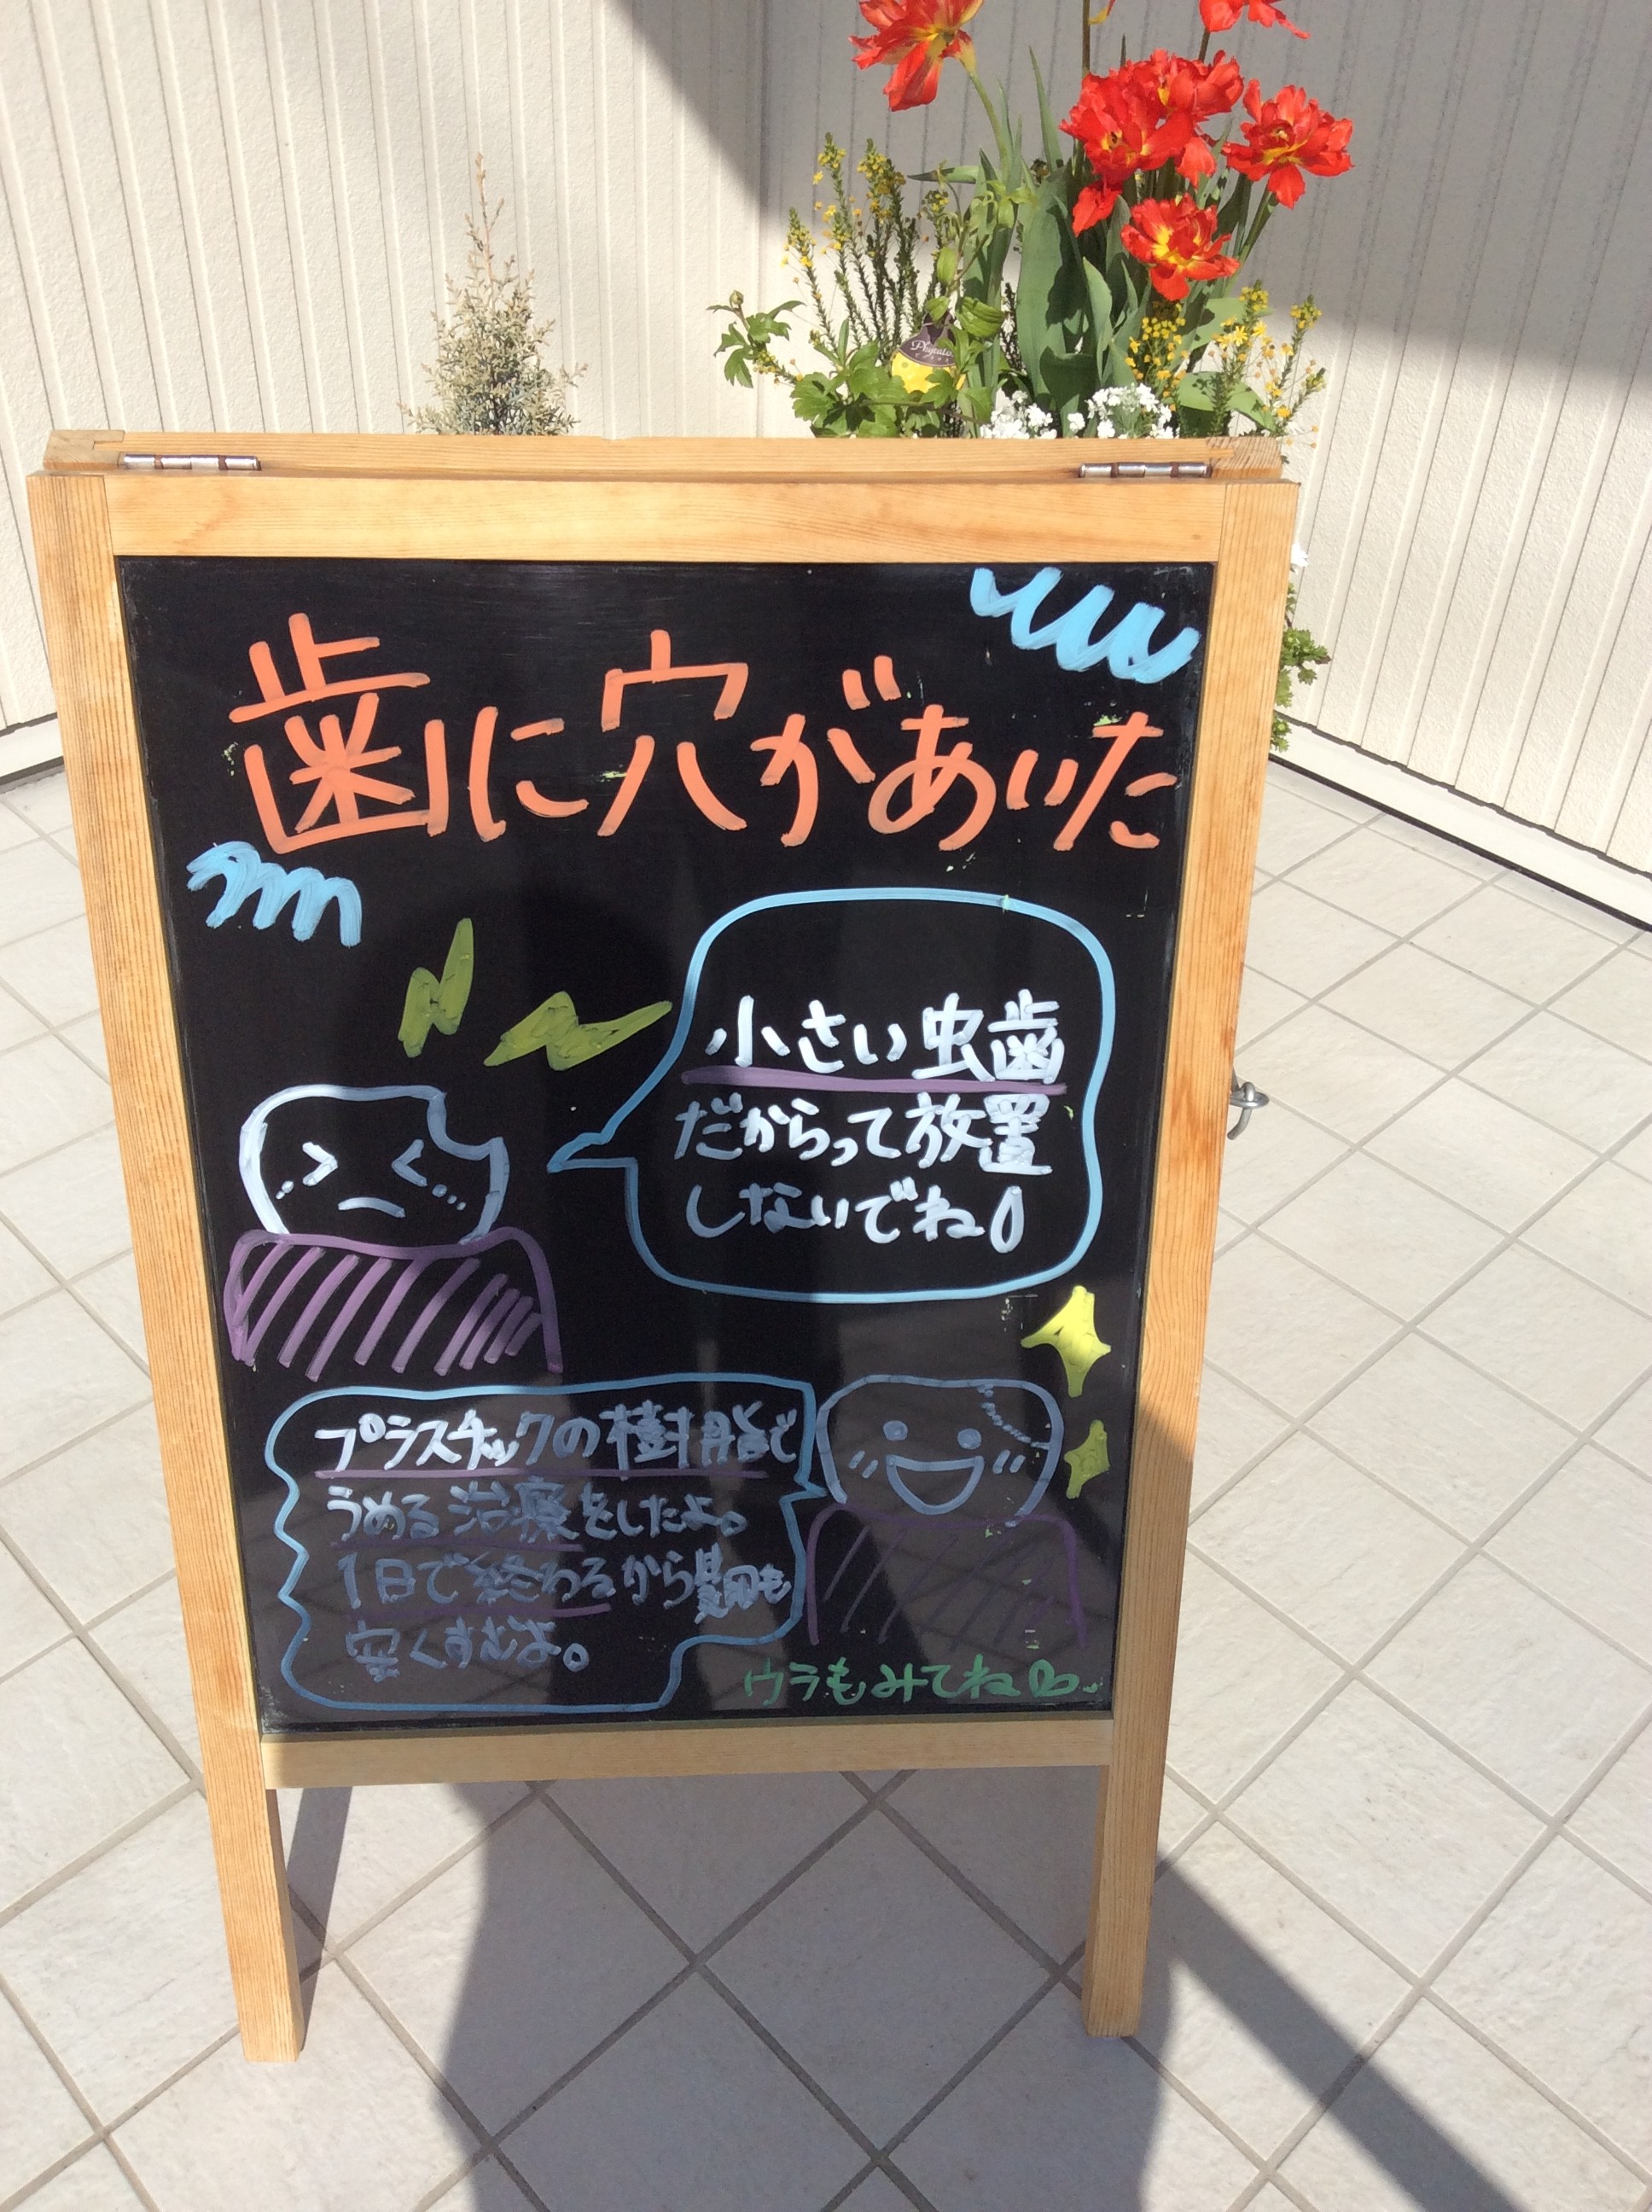 歯に穴があいた
小さい虫歯
だからって放置
しないでね!
プラスチックの樹脂で
うめる治療をしたよ。
1日で終わるから費用も
安くすむよ。
ウラもみてね